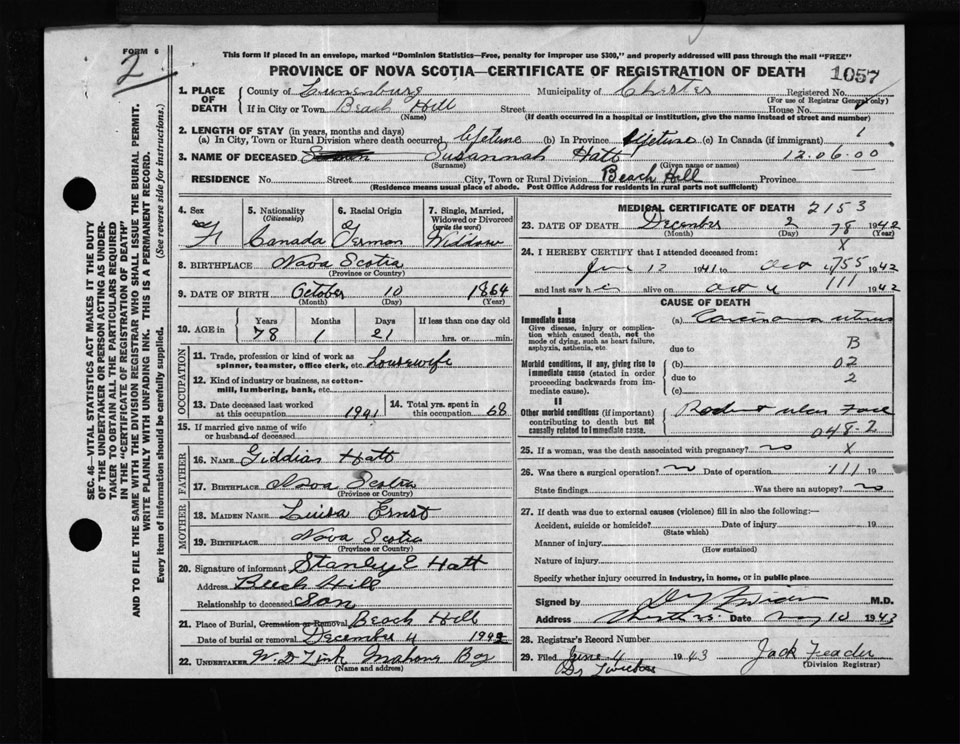 FORM 6
2
This form if placed in an envelope, marked "Dominion Statistics—Free, penalty for improper use $300," and properly addressed will pass through the mail "FREE"
PROVINCE OF NOVA SCOTIA—CERTIFICATE OF REGISTRATION OF DEATH 1057
SEC. 46—VITAL STATISTICS ACT MAKES IT THE DUTY
OF THE UNDERTAKER OR PERSON ACTING AS UNDER-
TAKER TO OBTAIN ALL THE PARTICULARS REQUIRED
IN THE "CERTIFICATE OF REGISTRATION OF DEATH"
AND TO FILE THE SAME WITH THE DIVISION REGISTRAR WHO SHALL ISSUE THE BURIAL PERMIT.
WRITE PLAINLY WITH UNFADING INK. THIS IS A PERMANENT RECORD.
Every item of information should be carefully supplied. (See reverse side for instructions.)
1. PLACE OF DEATH County of Lunenburg Municipality of Chester Registered No.
(For use of Registrar General only)
If in City or Town Beach Hill Street House No.
(Name) (If death occurred in a hospital or institution, give the name instead of street and number)
2. LENGTH OF STAY (in years, months and days)
(a) In City, Town or Rural Division where death occurred lifetime (b) In Province lifetime (c) In Canada (if immigrant) 1
3. NAME OF DECEASED Susannah Hatt 12.06.00
(Surname) (Given name or names)
RESIDENCE No. Street City, Town or Rural Division Beach Hill Province
(Residence means usual place of abode. Post Office Address for residents in rural parts not sufficient)
4. Sex F
5. Nationality (Citizenship) Canada
6. Racial Origin German
7. Single, Married, Widowed or Divorced (write the word) Widdow
8. BIRTHPLACE Nova Scotia
(Province or Country)
9. DATE OF BIRTH October 10 1864
(Month) (Day) (Year)
10. AGE in Years Months Days If less than one day old
78 1 21 hrs. or min.
OCCUPATION
11. Trade, profession or kind of work as spinner, teamster, office clerk, etc. Housewife
12. Kind of industry or business, as cotton-mill, lumbering, bank, etc.
13. Date deceased last worked at this occupation 1941
14. Total yrs. spent in this occupation 68
15. If married give name of wife or husband of deceased
FATHER
16. NAME Giddian Hatt
17. BIRTHPLACE Nova Scotia
(Province or Country)
MOTHER
18. MAIDEN NAME Luisa Ernst
19. BIRTHPLACE Nova Scotia
(Province or Country)
20. Signature of informant Stanley E Hatt
Address Beech Hill
Relationship to deceased Son
21. Place of Burial, Cremation or Removal Beach Hill
Date of burial or removal December 4 1942
22. UNDERTAKER W. D. Zink Mahone Bay
(Name and address)
MEDICAL CERTIFICATE OF DEATH 2153
23. DATE OF DEATH December 2 1942
(Month) (Day) (Year)
78
X
24. I HEREBY CERTIFY that I attended deceased from:
Jun 12 1941 to Oct 1942
755
and last saw h er alive on Oct 4 1942
111
CAUSE OF DEATH
I
Immediate cause
Give disease, injury or complication which caused death, not the mode of dying, such as heart failure, asphyxia, asthenia, etc.
(a) Carcinoma uterus
due to B
Morbid conditions, if any, giving rise to immediate cause (stated in order proceeding backwards from immediate cause).
(b) 02
due to 2
(c)
II
Other morbid conditions (if important) contributing to death but not causally related to immediate cause.
Rodent ulcer Face
048-2
25. If a woman, was the death associated with pregnancy? no X
26. Was there a surgical operation? no Date of operation 111 19
State findings Was there an autopsy? no
27. If death was due to external causes (violence) fill in also the following:—
Accident, suicide or homicide? Date of injury 19
(State which)
Manner of injury
(How sustained)
Nature of injury
Specify whether injury occurred in industry, in home, or in public place
Signed by M.D.
Address Date 10 1943
28. Registrar's Record Number
29. Filed June 4 1943 Jack Feader
(Division Registrar)